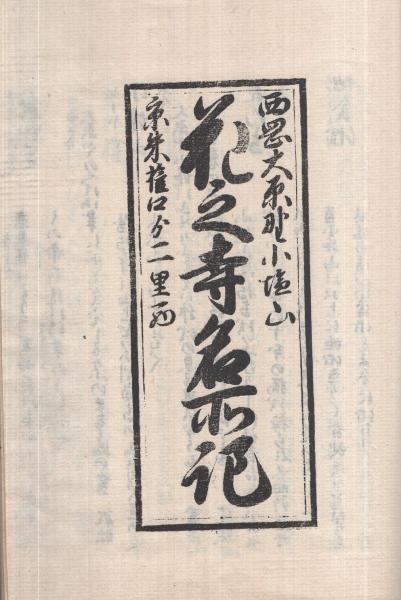 西岡大原野小塩山
花之寺名所記
京朱雀口ゟ二里西